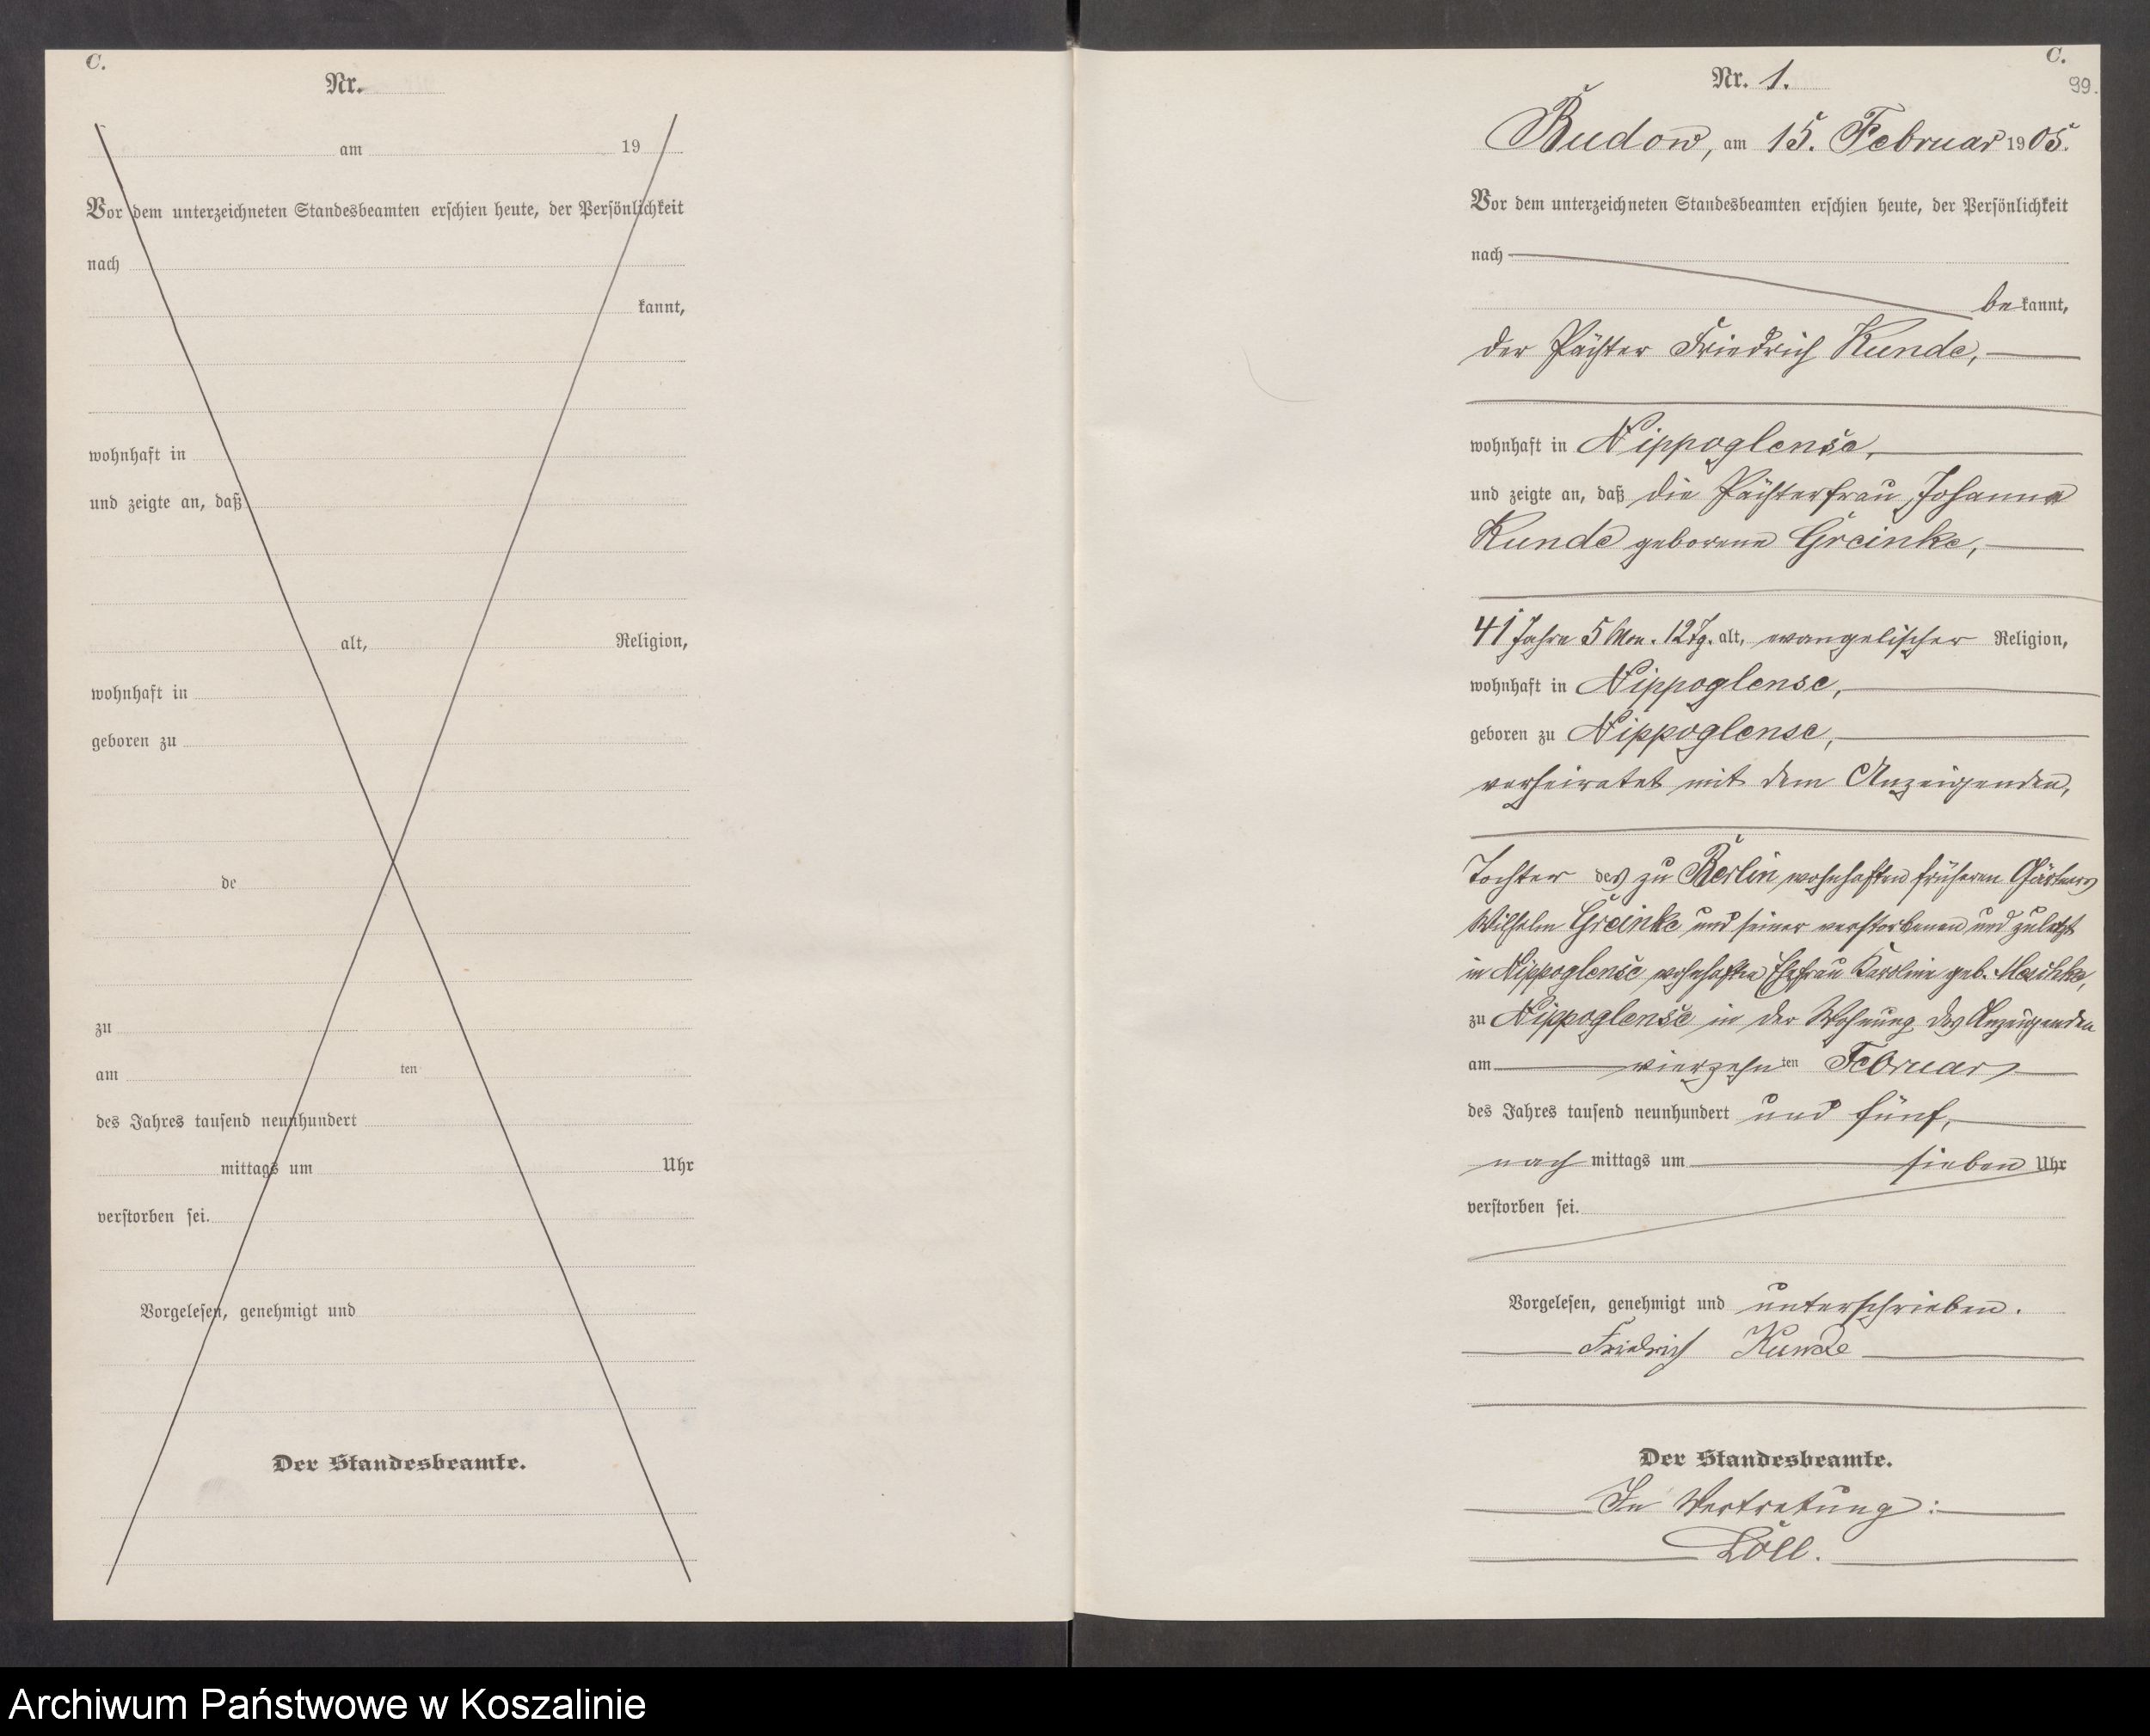 C.
Nr.
am 19
Vor dem unterzeichneten Standesbeamten erschien heute, der Persönlichkeit
nach
kannt,
wohnhaft in
und zeigte an, daß
alt, Religion,
wohnhaft in
geboren zu
de
zu
am ten
des Jahres tausend neunhundert
mittags um Uhr
verstorben sei.
Vorgelesen, genehmigt und
Der Standesbeamte.
C.
Nr. 1.
99.
Budow, am 15. Februar 1905.
Vor dem unterzeichneten Standesbeamten erschien heute, der Persönlichkeit
nach
bekannt,
der Pächter Friedrich Kunde,
wohnhaft in Nippoglense,
und zeigte an, daß die Pächterfrau Johanna
Kunde geborene Greinke,
41 Jahre 5 Mon. 12 Tg. alt, evangelischer Religion,
wohnhaft in Nippoglense,
geboren zu Nippoglense,
verheiratet mit dem Anzeigenden,
Tochter des zu Berlin wohnhaften früheren Gärtners
Wilhelm Greinke und seiner verstorbenen und zuletzt
in Nippoglense wohnhaften Ehefrau Karoline geb.
zu Nippoglense in der Wohnung des Anzeigenden
am vierzehnten Februar
des Jahres tausend neunhundert und fünf,
nachmittags um sieben Uhr
verstorben sei.
Vorgelesen, genehmigt und unterschrieben.
Friedrich Kunde
Der Standesbeamte.
In Vertretung:
Löll.
Archiwum Państwowe w Koszalinie